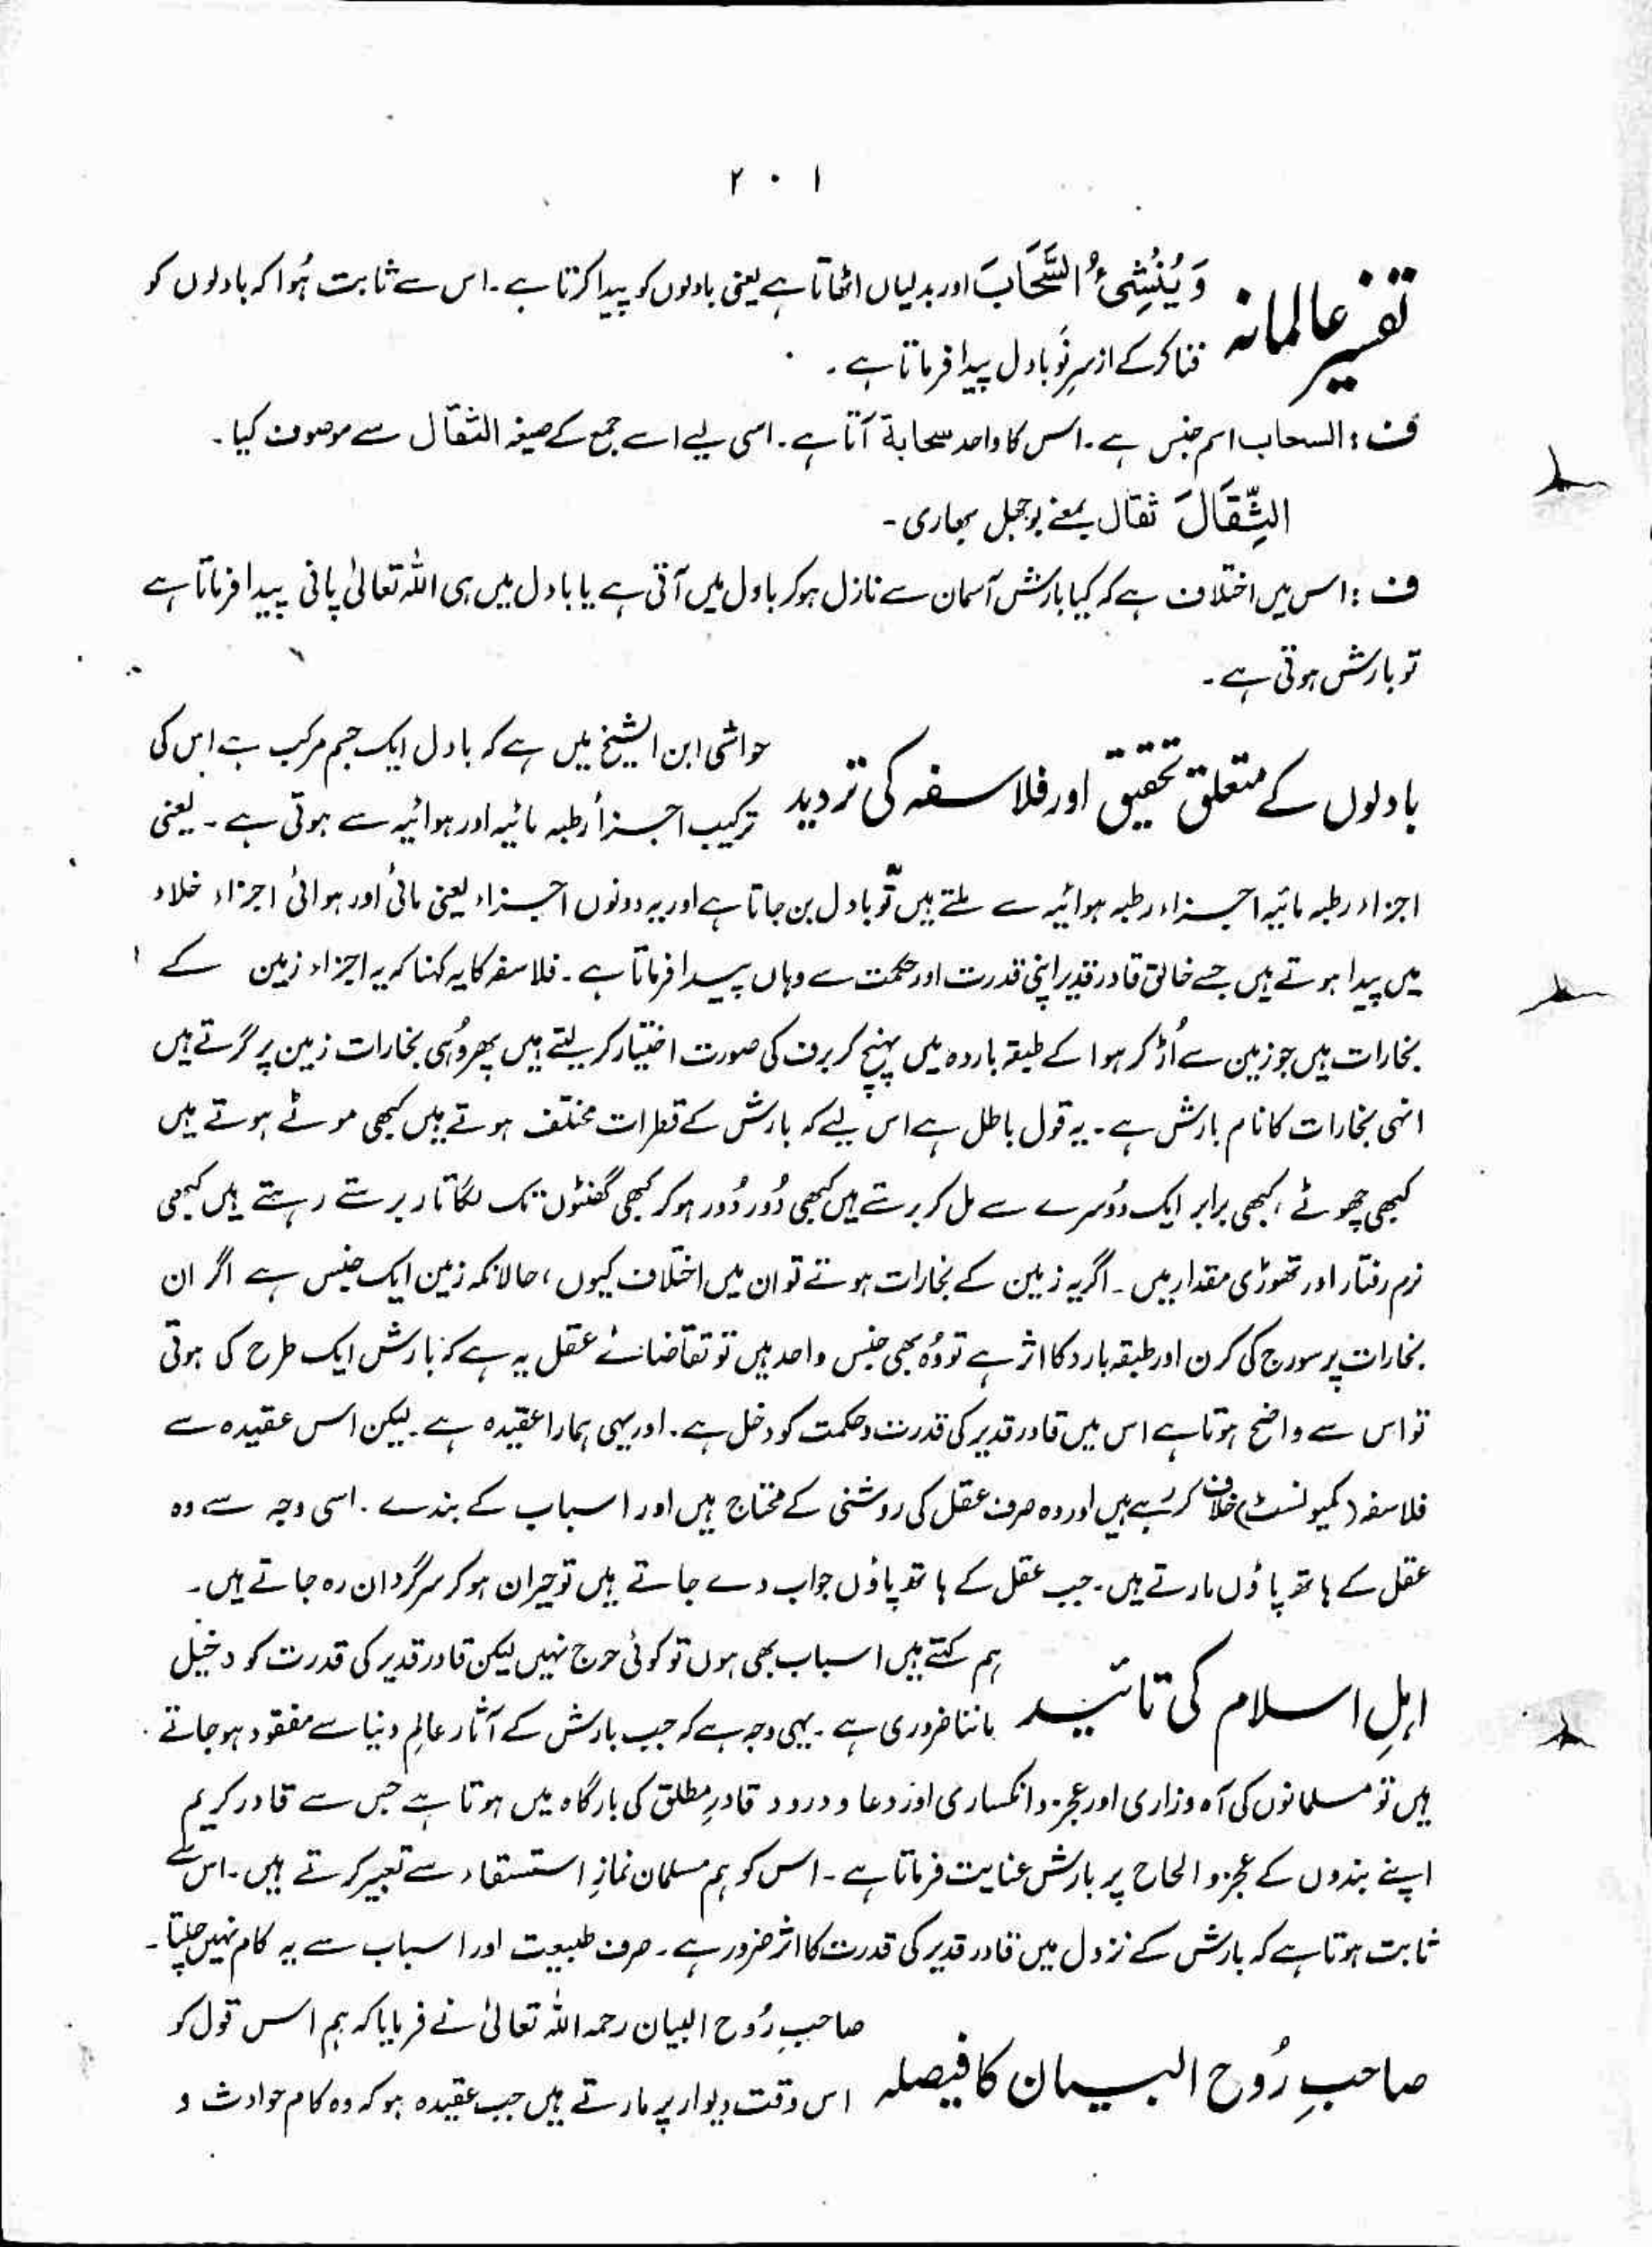 ۲۰۱
تفسیر عالمانہ وَیُنْشِئُ السَّحَابَ اور بدلیاں اٹھاتا ہے یعنی بادلوں کو پیدا کرتا ہے۔ اس سے ثابت ہُوا کہ بادلوں کو
فنا کرکے از سرِ نَو بادل پیدا فرماتا ہے۔
ف : السحاب اسم جنس ہے۔ اس کا واحد سحابۃ آتا ہے۔ اسی لیے اسے جمع کے صیغہ الثقال سے موصوف کیا۔
الثِّقَالَ ثقال بمعنے بوجھل بھاری۔
ف : اس میں اختلاف ہے کہ کیا بارش آسمان سے نازل ہوکر بادل میں آتی ہے یا بادل میں ہی اللہ تعالیٰ پانی پیدا فرماتا ہے
تو بارش ہوتی ہے۔
بادلوں کے متعلق تحقیق اور فلاسفہ کی تردید حواشی ابن الشیخ میں ہے کہ بادل ایک جسم مرکب ہے اس کی
ترکیب اجزأ رطبہ مائیہ اور ہوائیہ سے ہوتی ہے۔ یعنی
اجزاء رطبہ مائیہ اجزاء رطبہ ہوائیہ سے ملتے ہیں تو بادل بن جاتا ہے اور یہ دونوں اجزاء یعنی مائی اور ہوائی اجزاء خلاء
میں پیدا ہوتے ہیں جسے خالق قادر قدیر اپنی قدرت اور حکمت سے وہاں پیدا فرماتا ہے۔ فلاسفہ کا یہ کہنا کہ یہ اجزاء زمین کے
بخارات ہیں جو زمین سے اُڑ کر ہوا کے طبقہ باردہ میں پہنچ کر برف کی صورت اختیار کر لیتے ہیں پھر وُہی بخارات زمین پر گرتے ہیں
انہی بخارات کا نام بارش ہے۔ یہ قول باطل ہے اس لیے کہ بارش کے قطرات مختلف ہوتے ہیں کبھی موٹے ہوتے ہیں
کبھی چھوٹے، کبھی برابر ایک دُوسرے سے مل کر برستے ہیں کبھی دُور دُور ہوکر کبھی گھنٹوں تک لگاتار برستے رہتے ہیں کبھی
نرم رفتار اور تھوڑی مقدار میں۔ اگر یہ زمین کے بخارات ہوتے تو ان میں اختلاف کیوں، حالانکہ زمین ایک جنس ہے اگر ان
بخارات پر سورج کی کرن اور طبقہ بارد کا اثر ہے تو وُہ بھی جنس واحد ہیں تو تقاضائے عقل یہ ہے کہ بارش ایک طرح کی ہوتی
تو اس سے واضح ہوتا ہے اس میں قادر قدیر کی قدرت و حکمت کو دخل ہے۔ اور یہی ہمارا عقیدہ ہے۔ لیکن اس عقیدہ سے
فلاسفہ (کمیونسٹ) خلاف کر رہے ہیں اور وہ صرف عقل کی روشنی کے محتاج ہیں اور اسباب کے بندے۔ اسی وجہ سے وہ
عقل کے ہاتھ پاؤں مارتے ہیں۔ جب عقل کے ہاتھ پاؤں جواب دے جاتے ہیں تو حیران ہوکر سرگردان رہ جاتے ہیں۔
اہلِ اسلام کی تائید ہم کہتے ہیں اسباب بھی ہوں تو کوئی حرج نہیں لیکن قادر قدیر کی قدرت کو دخیل
ماننا ضروری ہے۔ یہی وجہ ہے کہ جب بارش کے آثار عالمِ دنیا سے مفقود ہوجاتے
ہیں تو مسلمانوں کی آہ وزاری اور عجز و انکساری اور دعا و درود قادرِ مطلق کی بارگاہ میں ہوتا ہے جس سے قادر کریم
اپنے بندوں کے عجز و الحاح پر بارش عنایت فرماتا ہے۔ اس کو ہم مسلمان نمازِ استسقاء سے تعبیر کرتے ہیں۔ اس سے
ثابت ہوتا ہے کہ بارش کے نزول میں قادر قدیر کی قدرت کا اثر ضرور ہے۔ صرف طبیعت اور اسباب سے یہ کام نہیں چلتا۔
صاحبِ رُوح البیان کا فیصلہ صاحبِ رُوح البیان رحمہ اللہ تعالیٰ نے فرمایا کہ ہم اس قول کو
اس وقت دیوار پر مارتے ہیں جب عقیدہ ہو کہ وہ کام حوادث و